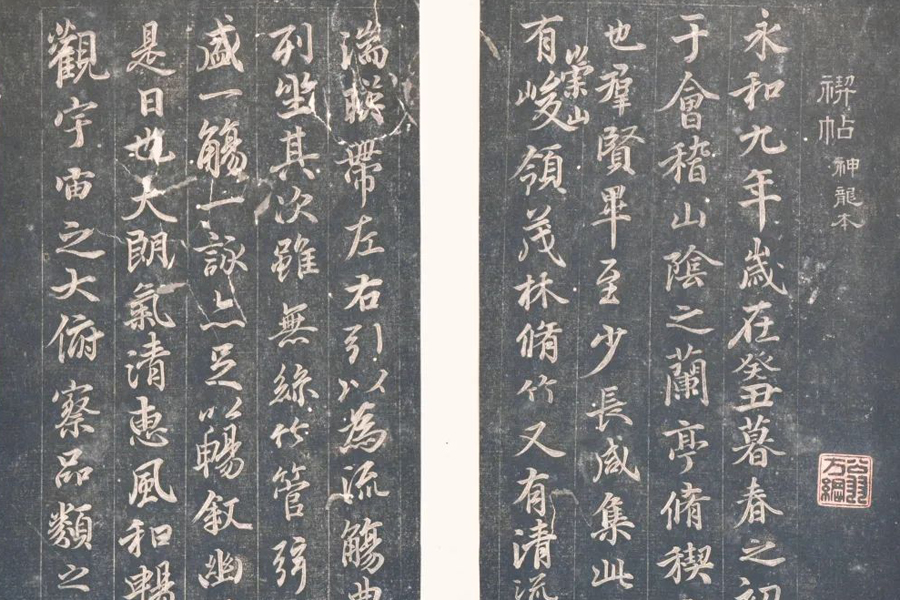 禊帖 神龍本
翁方綱
永和九年歲在癸丑暮春之初
于會稽山陰之蘭亭脩稧
也羣賢畢至少長咸集此
有崇山峻領茂林脩竹又有清流
湍暎帶左右引以為流觴曲
列坐其次雖無絲竹管弦
盛一觴一詠亦足以暢敘幽
是日也天朗氣清惠風和暢
觀宇宙之大俯察品類之